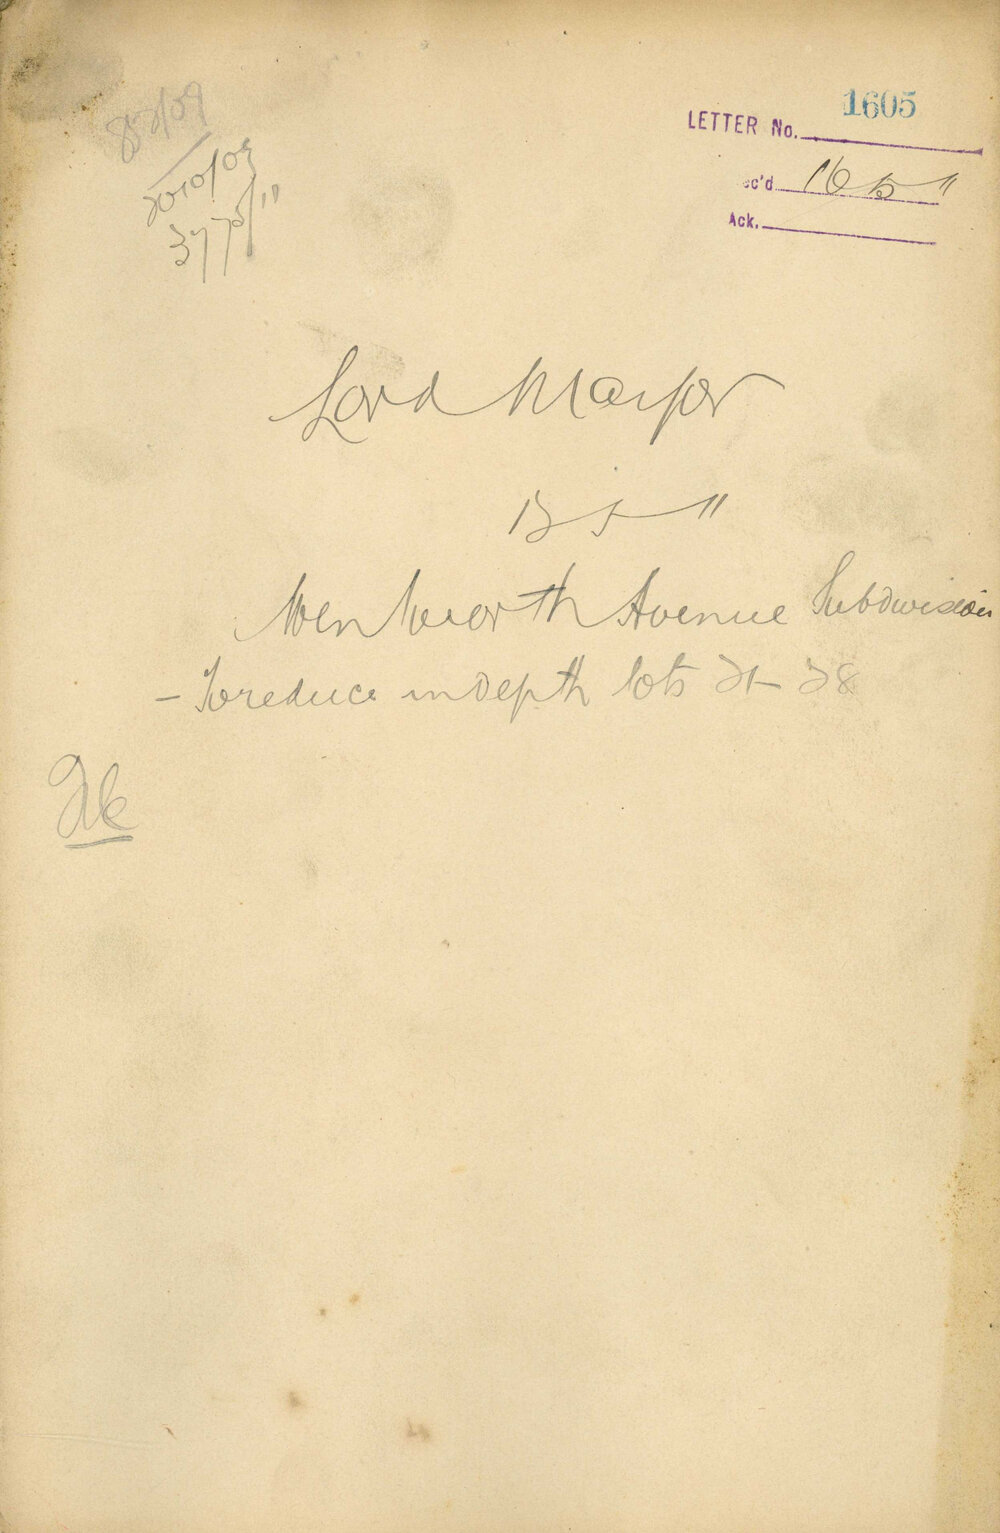 1605
LETTER No.
c'd 16 5 11
Ack.
2010/09
3775/11
Lord Mayor
13 5 11
Wentworth Avenue Subdivision
- To reduce in depth lots 21-28